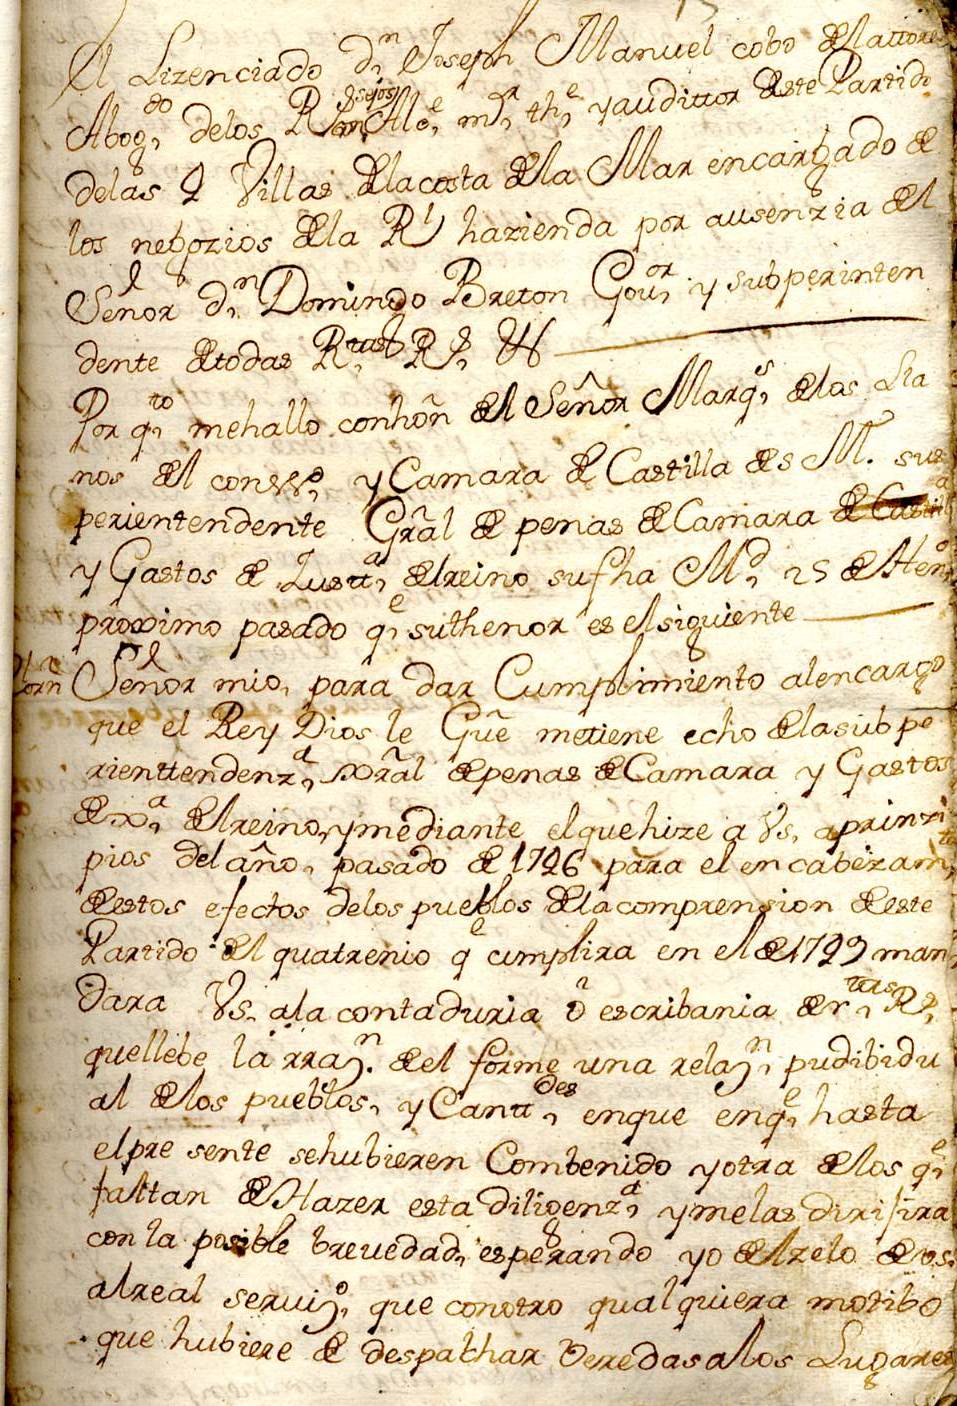 El Lizenciado Dn. Joseph Manuel cobo de la torre
Abogdo. de los Rs. consejos Alce. mr. the. y audittor deste Partido
de las 4 Villas de la costa de la Mar encargado de
los negozios de la Rl hazienda por ausenzia del
Señor Dn. Domingo Breton Gouor. y subperinten
dente de todas Rtas. Rs. &
Por qto. me hallo con horn del Señor Marqs. de los Lla
nos del conso. y Camara de Castilla de s M. su
perientendente Gral de penas de Camara
y Gastos de Justta. del reino su fha Md. 25 de Heno.
proximo pasado qe. su thenor es el siguiente
Horn Señor mio, para dar Cumplimiento al encargo
que el Rey Dios le Gue me tiene echo de la subpe
rienttendenza. xral de penas de Camara y Gastos
de xa. del reino, y mediante el que hize a Vs. a prinzi
pios del año, pasado de 1726 para el encabezamto.
de estos efectos de los pueblos de la comprension de este
Partido del quatrenio qe cumplira en el de 1729 man
dara Vs. a la contaduria o escribania de rtas. Rs.
que llebe la rrazn. de el forme una relazn. yndibidu
al de los pueblos, y Canttdes. en que en qe. hasta
el presente se hubieren Combenido y otra de los qe.
faltan de Hazer esta diligenza. y me las dirijira
con la posible brevedad, esperando yo del zelo de vs.
al real servizo. que con otro qualquiera motibo
que hubiere de despachar Veredas a los Lugares